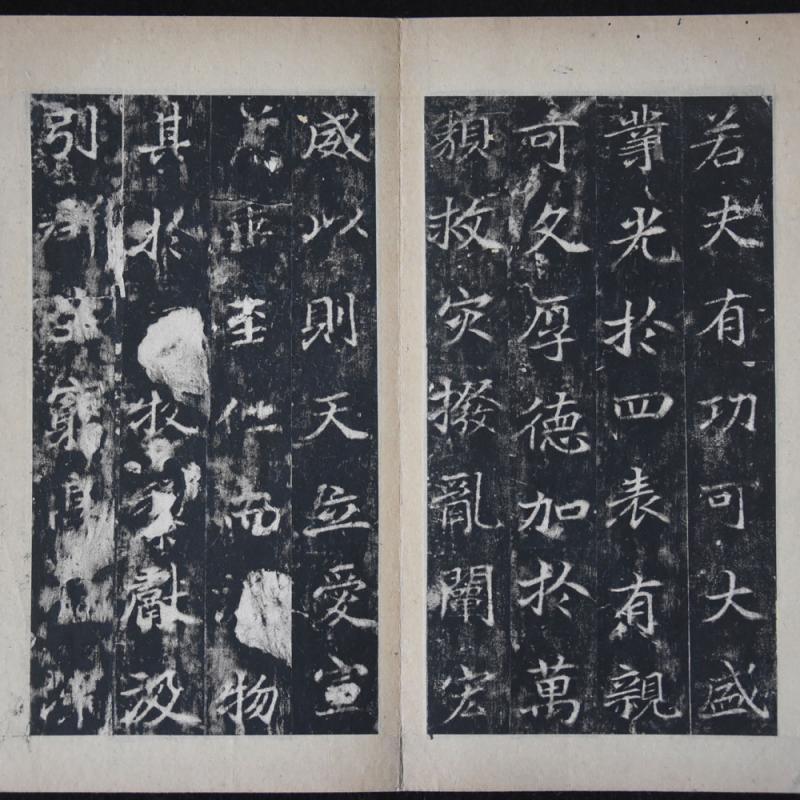 若夫有功可大盛
業光於四表有親
可久厚德加於萬
類救灾撥亂闡宏
威以則天立愛宣
慈垂至仁而物
其於救獻汲
引窮